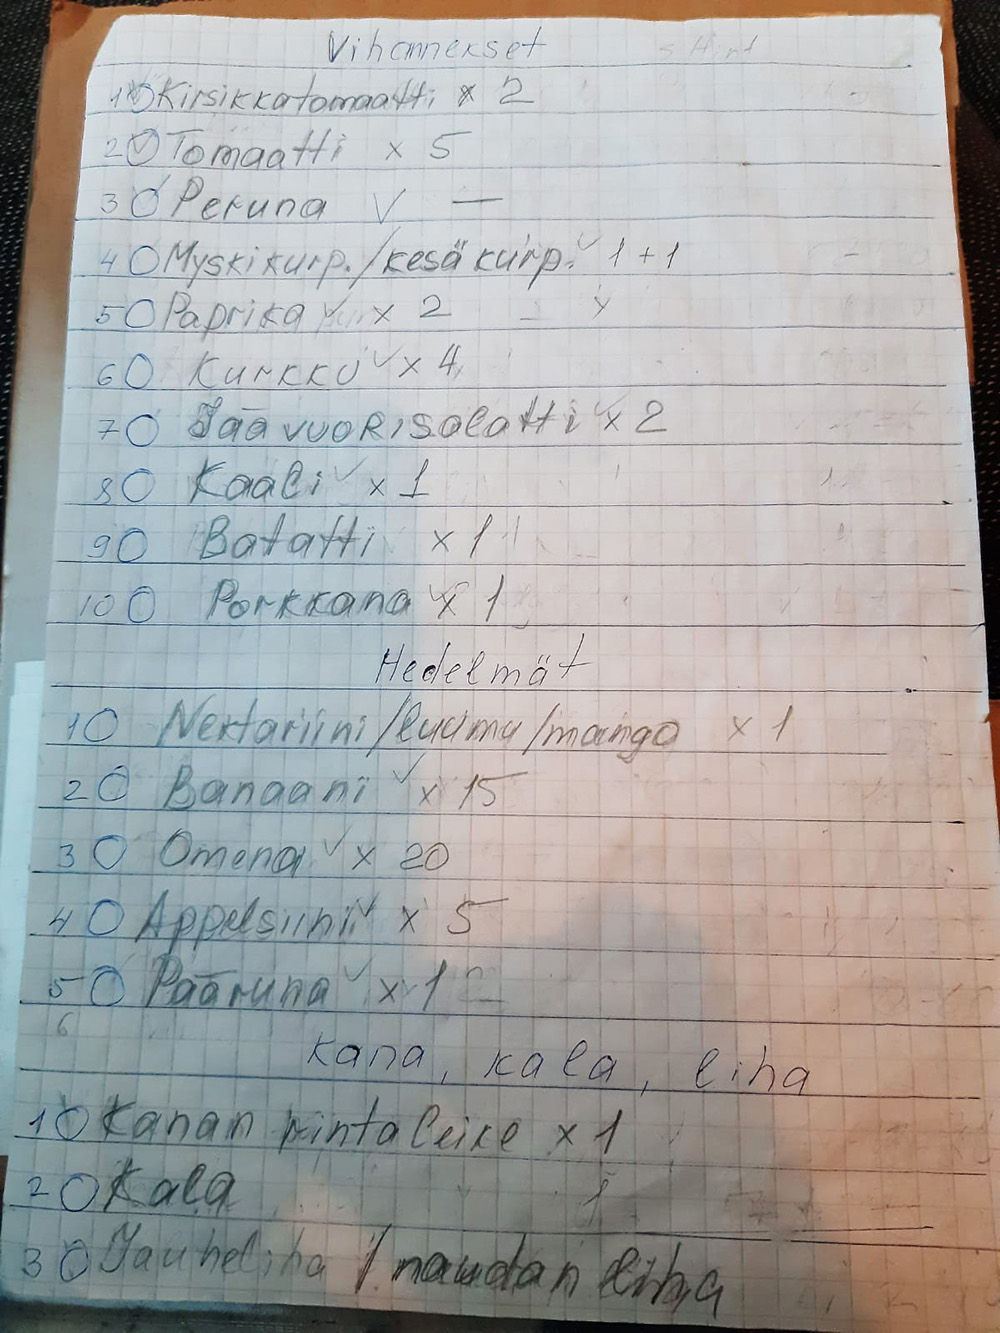 Vihannekset
1 Kirsikkatomaatti x 2
2 Tomaatti x 5
3 Peruna ✓ —
4 Myskikurp./kesäkurp. ✓ 1 + 1
5 Paprika ✓ x 2
6 Kurkku ✓ x 4
7 Jäävuorisalatti ✓ x 2
8 Kaali ✓ x 1
9 Batatti x 1
10 Porkkana ✓ x 1
Hedelmät
1 Nektariini/luumu/mango x 1
2 Banaani ✓ x 15
3 Omena ✓ x 20
4 Appelsiini ✓ x 5
5 Pääruna ✓ x 1
6
Kana, kala, liha
1 Kanan rintaleike x 1
2 Kala 1
3 Jauheliha / naudan liha